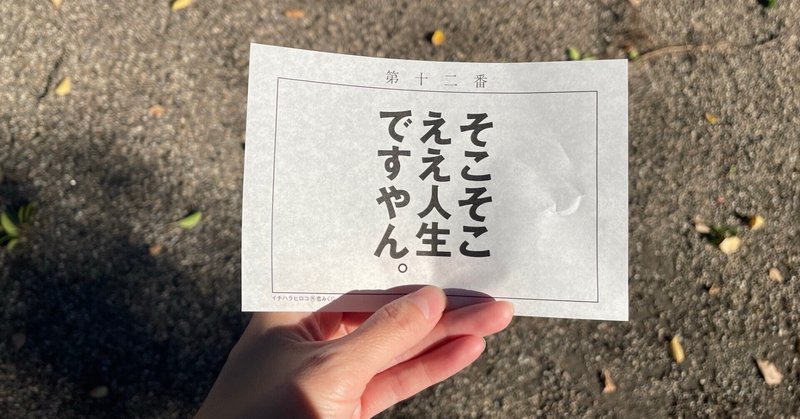 第十二番
そこそこ
ええ人生
ですやん。
イチハラヒロコ®恋みくじ